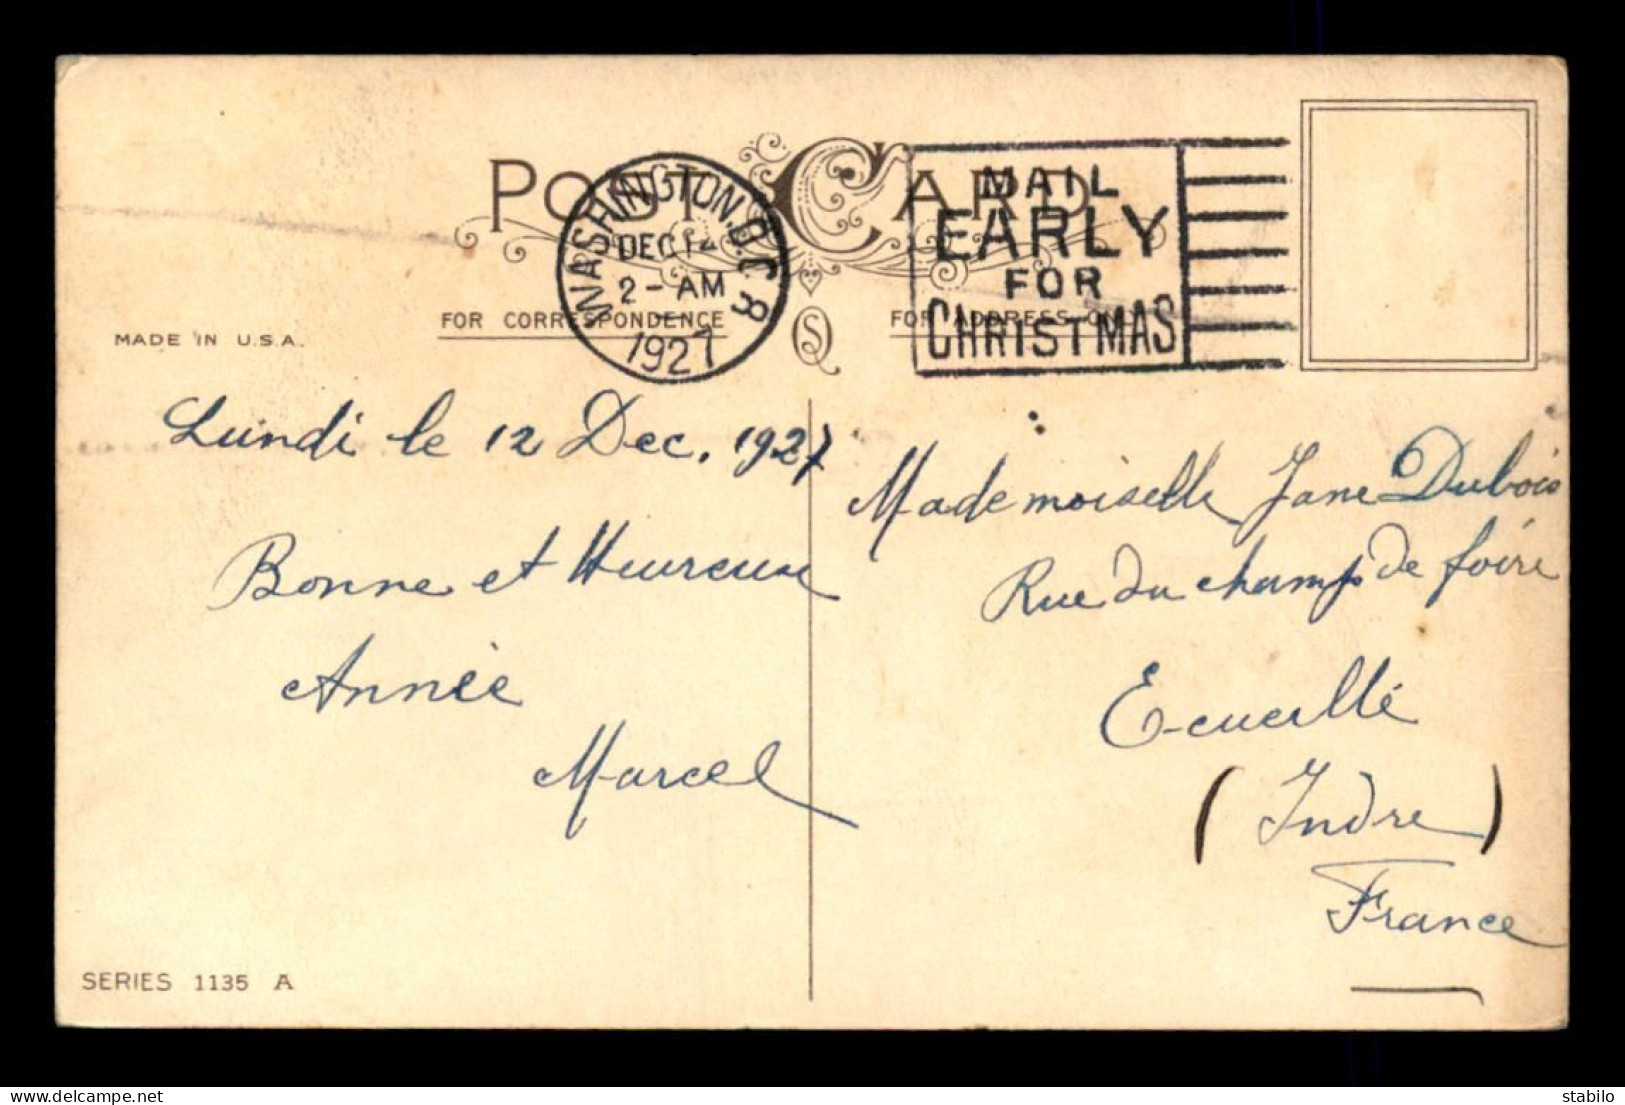 POST CARD
WASHINGTON, D.C. 8
DEC 14
2 - AM
1927
MAIL
EARLY
FOR
CHRISTMAS
FOR CORRESPONDENCE
FOR ADDRESS ONLY
MADE IN U.S.A.
Lundi le 12 Dec. 1927
Bonne et Heureuse
Année
Marcel
Mademoiselle Jane Dubois
Rue du champ de foire
Ecueillé
(Indre)
France
SERIES 1135 A
stabilo
delcampe.net